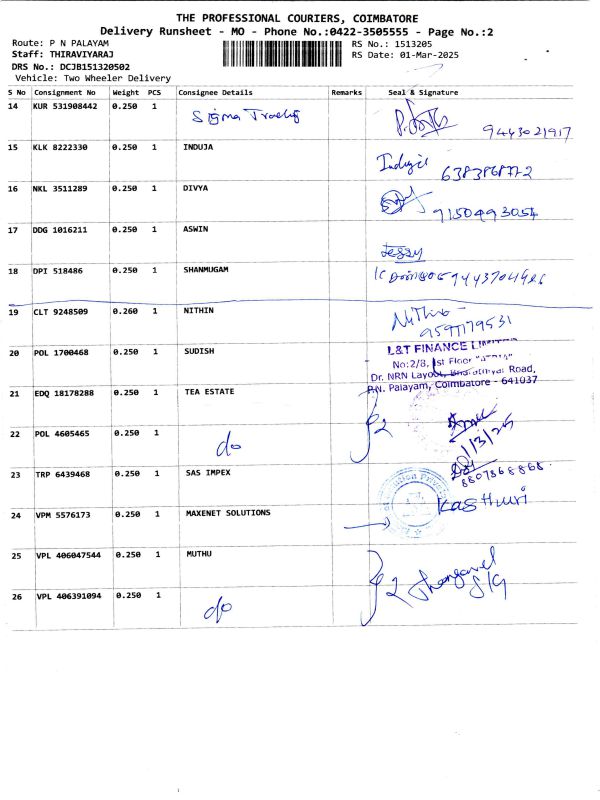 THE PROFESSIONAL COURIERS, COIMBATORE
Delivery Runsheet - MO - Phone No.:0422-3505555 - Page No.:2
Route: P N PALAYAM RS No.: 1513205
Staff: THIRAVIYARAJ RS Date: 01-Mar-2025
DRS No.: DCJB151320502
Vehicle: Two Wheeler Delivery
S No Consignment No Weight PCS Consignee Details Remarks Seal & Signature
14 KUR 531908442 0.250 1 Sigma
9443021917
15 KLK 8222330 0.250 1 INDUJA
16 NKL 3511289 0.250 1 DIVYA
9150493054
17 DDG 1016211 0.250 1 ASWIN
Jessy
18 DPI 518486 0.250 1 SHANMUGAM
19 CLT 9248509 0.260 1 NITHIN Nithin
20 POL 1700468 0.250 1 SUDISH L&T FINANCE LIMITED
No:2/8, 1st Floor
Dr. NRN Layout, Bharathiyar Road,
P.N. Palayam, Coimbatore - 641037
21 EDQ 18178288 0.250 1 TEA ESTATE
2
22 POL 4605465 0.250 1 do
1/3/25
23 TRP 6439468 0.250 1 SAS IMPEX
8807868868
24 VPM 5576173 0.250 1 MAXENET SOLUTIONS Kasthuri
25 VPL 406047544 0.250 1 MUTHU
2 Thangavel
S/G
26 VPL 406391094 0.250 1 do